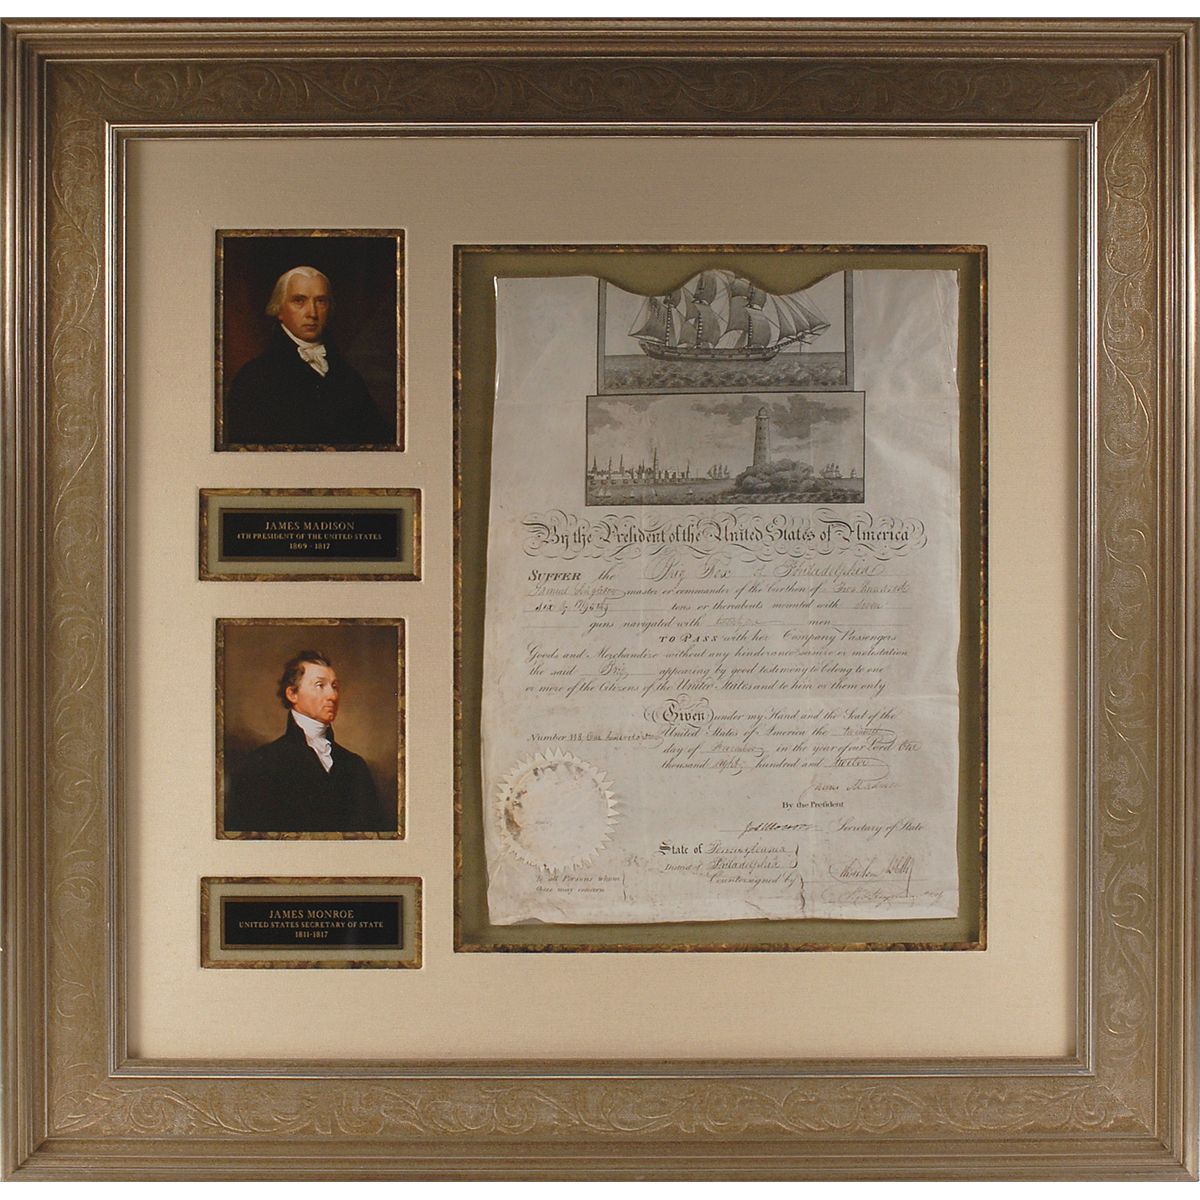 JAMES MADISON
4TH PRESIDENT OF THE UNITED STATES
1809 - 1817
JAMES MONROE
UNITED STATES SECRETARY OF STATE
1811-1817
By the President of the United States of America
SUFFER the Brig Fox of Philadelphia
Samuel master or commander of the burthen of Two hundred &
six & tons or thereabouts mounted with Seven
guns navigated with men
TO PASS with her Company Passengers
Goods and Merchandize without any hinderance seisure or molestation
the said Brig appearing by good testimony to belong to one
or more of the Citizens of the United States and to him or them only
Given under my Hand and the Seal of the
Number 118 One hundred United States of America the
day of in the year of our Lord One
thousand eight hundred and twelve
James Madison
By the President
Jas Monroe Secretary of State
State of Pennsylvania
District of Philadelphia
To all Persons whom Countersigned by
these may concern